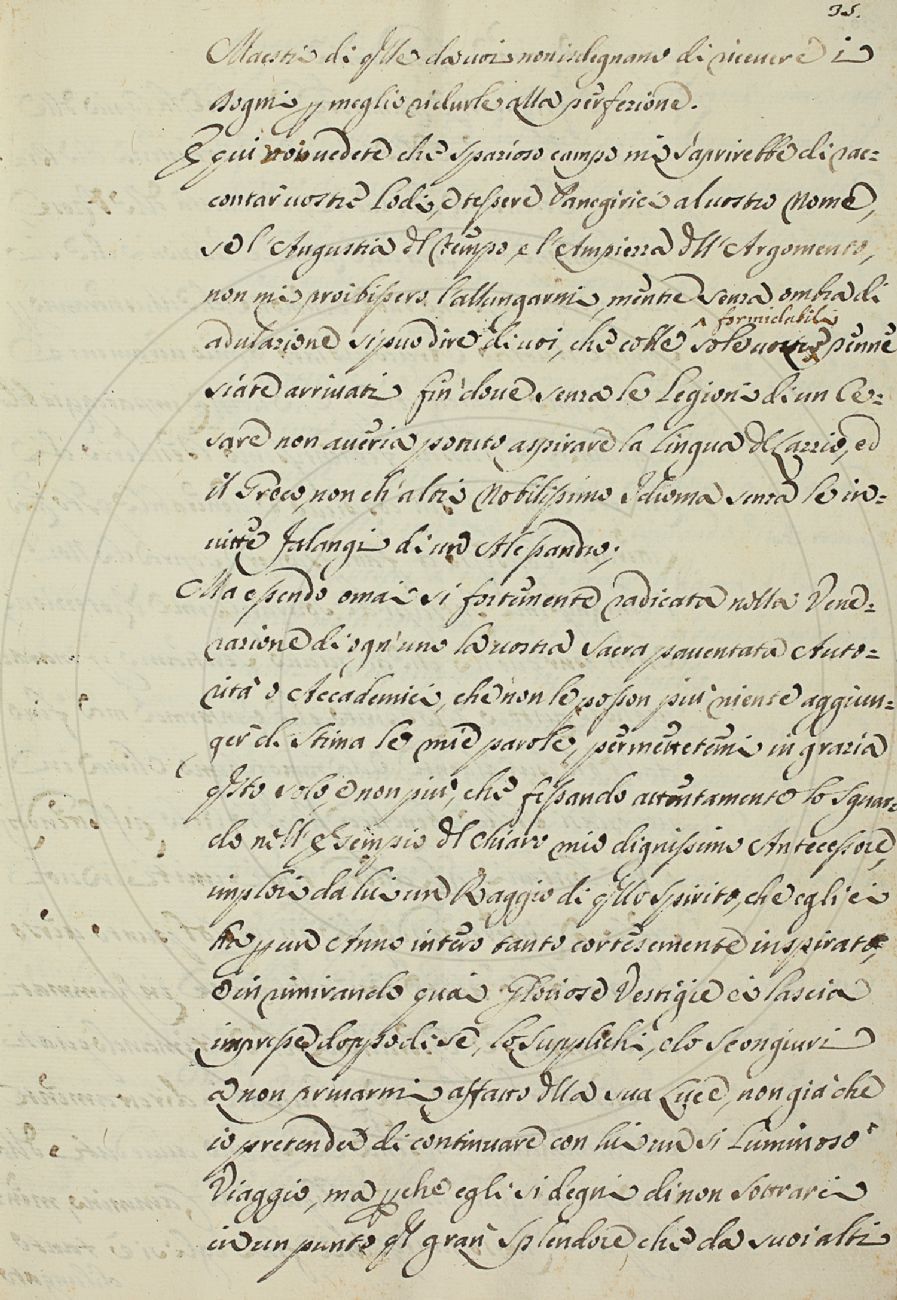 35.
Maestri di qlle da voi non isdegnano di ricevere i
Sogni p meglio ridurle alla perfezione.
E qui voi vedete che spazioso campo mi s'aprirebbe di rac=
contar vostre Lodi, e tessere Panegirici al vostro Nome,
se l'Angustia dl Tempo, e l'Ampiezza dll'Argomento,
non mi proibissero l'allungarmi, mentre senza ombra di
formidabili
adulazione si può dire di voi, che colle sole vostre penne
siate arrivati fin dove senza le Legioni di un Ce=
sare non averia potuto aspirare la Lingua dl Lazzio, ed
il Greco, non ch'altri Nobilissimo Idioma senza le in=
vitte Falangi di un Alessandro;
Ma essendo omai si fortemente radicata nella Vene=
razione di ogn'uno la vostra Sacra paventata Auto=
rità o Accademici, che non le posson più niente aggiun=
ger di Stima le mie parole, permettetemi in grazia
qsto solo, e non più, che fissando attentamente lo sguar=
do nell'Esempio dl Chiaro mio dignissimo Antecessore,
implori da lui un Raggio di qllo Spirito, che egli ci
ha p un Anno intero tanto cortesemente inspirato,
e in rimirando quai Gloriose Vestigie ci lascia
impresse doppo di sè, lo supplichi, e lo scongiuri
a non privarmi affatto dlla sua Luce, non già che
io pretenda di continuare con lui un si Luminoso
Viaggio, ma pche egli si degni di non sottrarci
in un punto ql gran Splendore, che da suoi alti